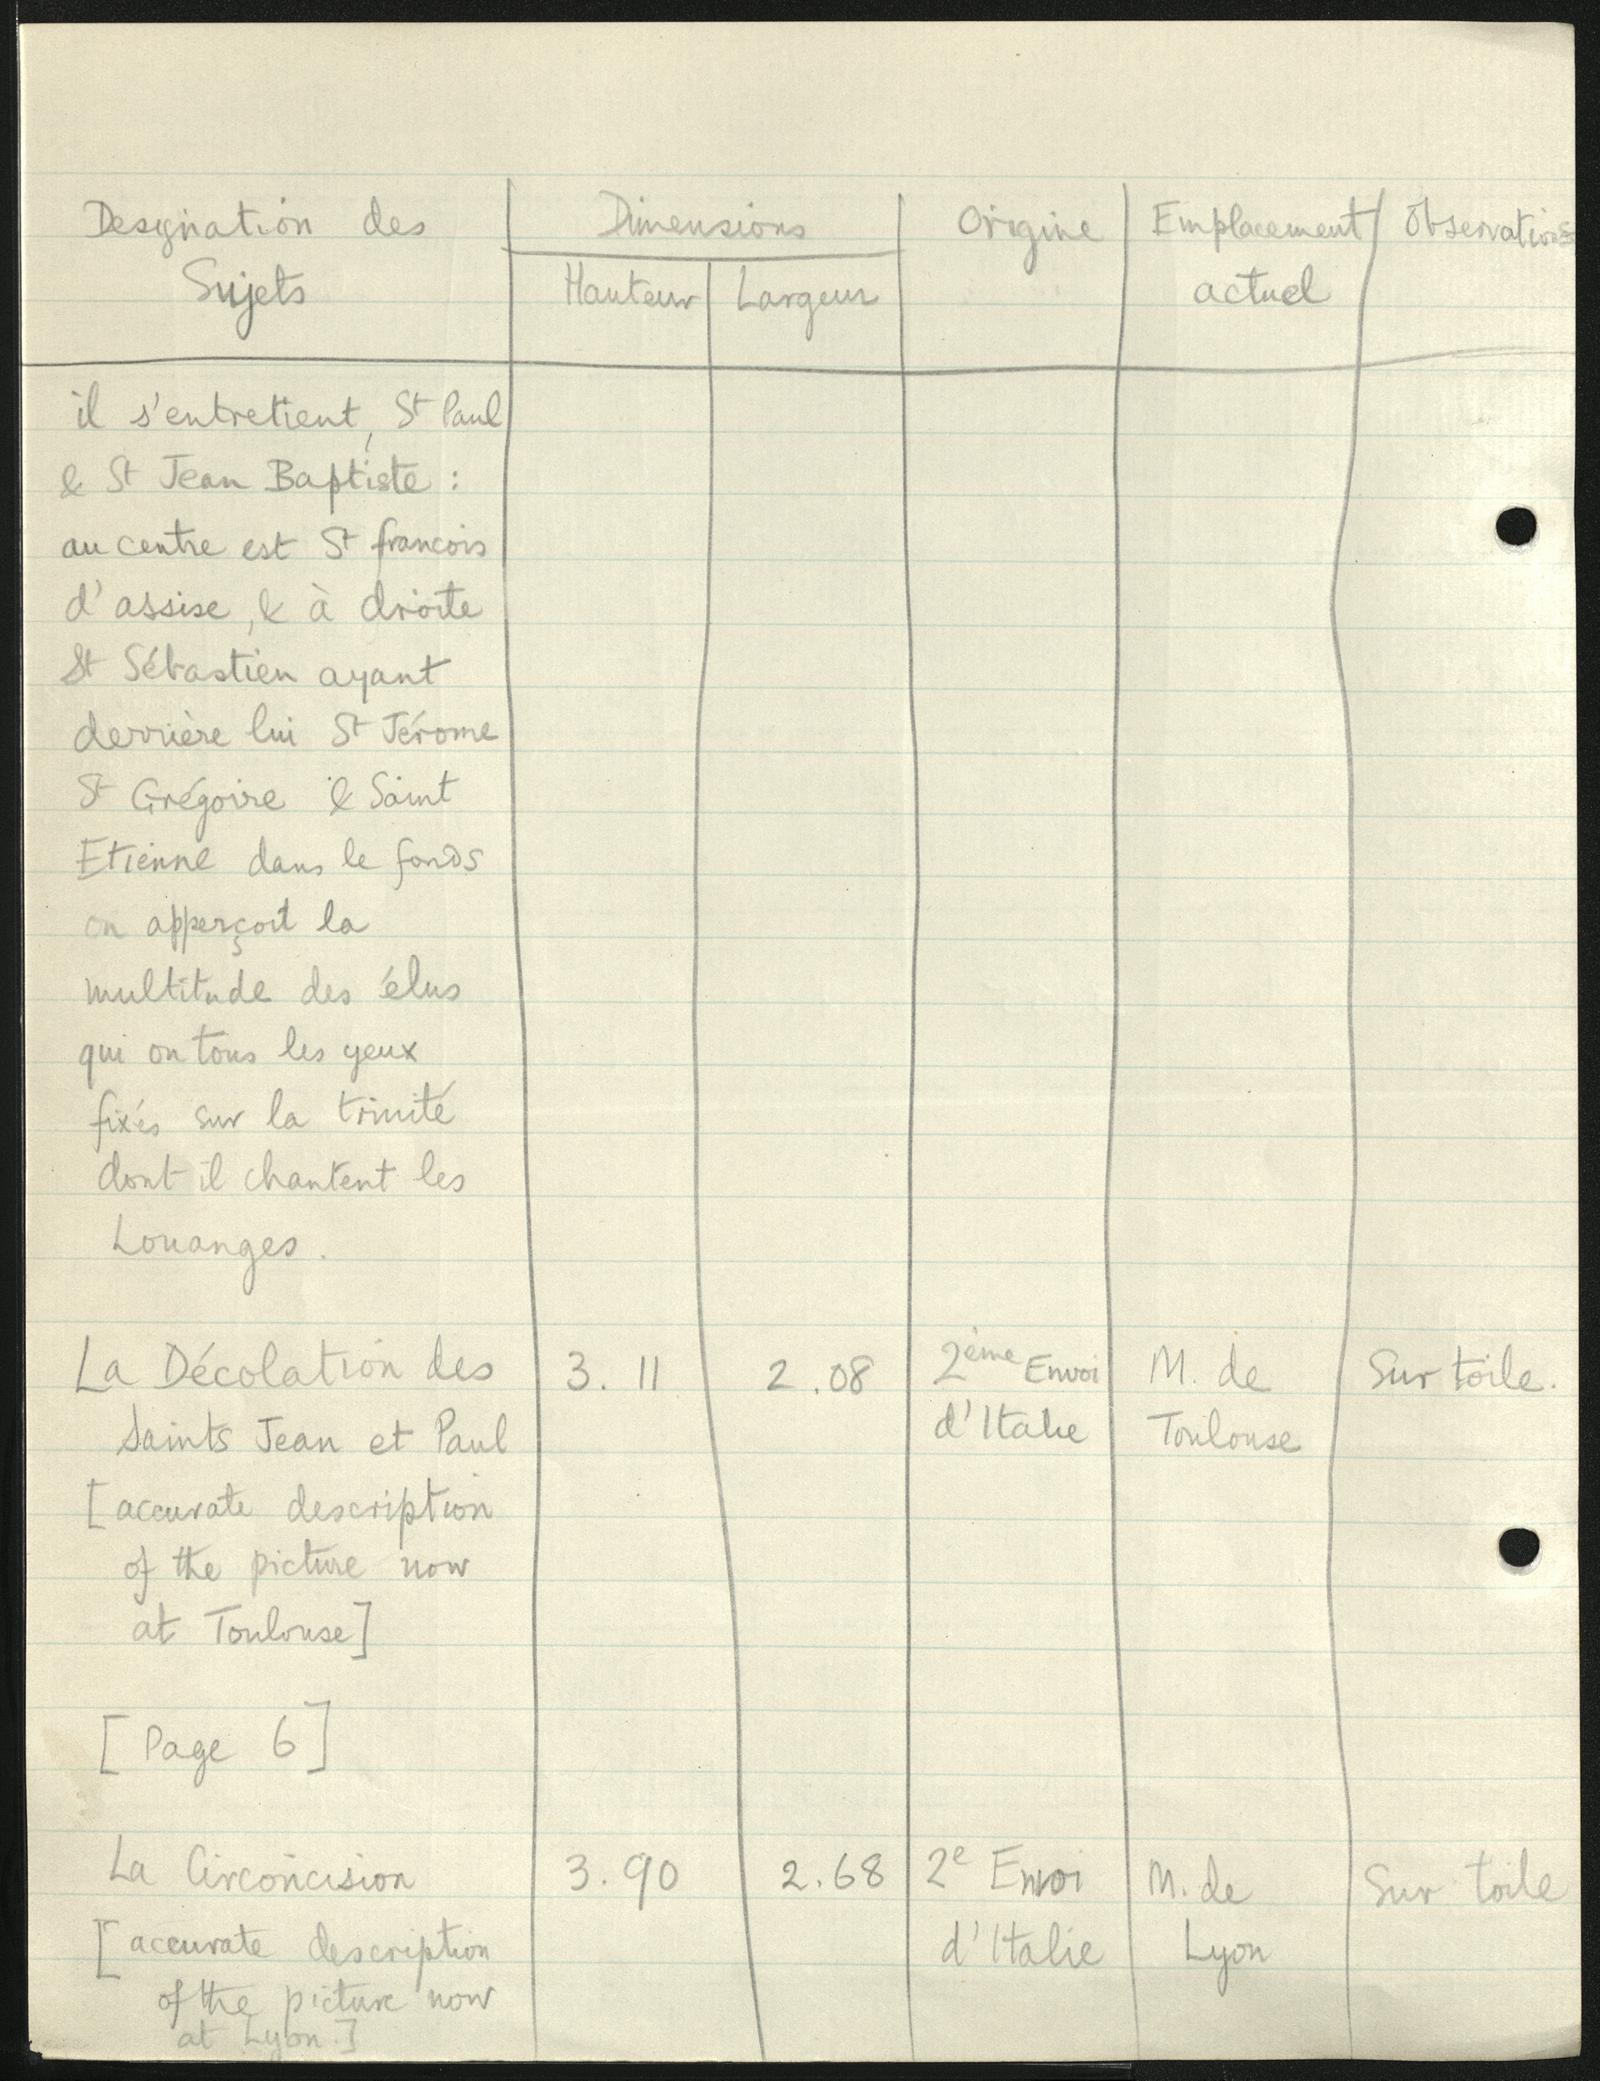 Designation des Sujets
Dimensions
Hauteur
Largeur
Origine
Emplacement actuel
Observations
il s'entretient, St Paul
& St Jean Baptiste :
au centre est St francois
d'assise, & à droite
St Sébastien ayant
derrière lui St Jérome
St Grégoire & Saint
Etienne dans le fonds
on apperçoit la
multitude des élus
qui on tous les yeux
fixés sur la trinité
dont il chantent les
Louanges.
La Décolation des 3.11 2.08 2ème Envoi M. de Sur toile.
Saints Jean et Paul d'Italie Toulouse
[accurate description
of the picture now
at Toulouse]
[Page 6]
La Circoncision 3.90 2.68 2e Envoi M. de Sur toile
[accurate description d'Italie Lyon
of the picture now
at Lyon.]